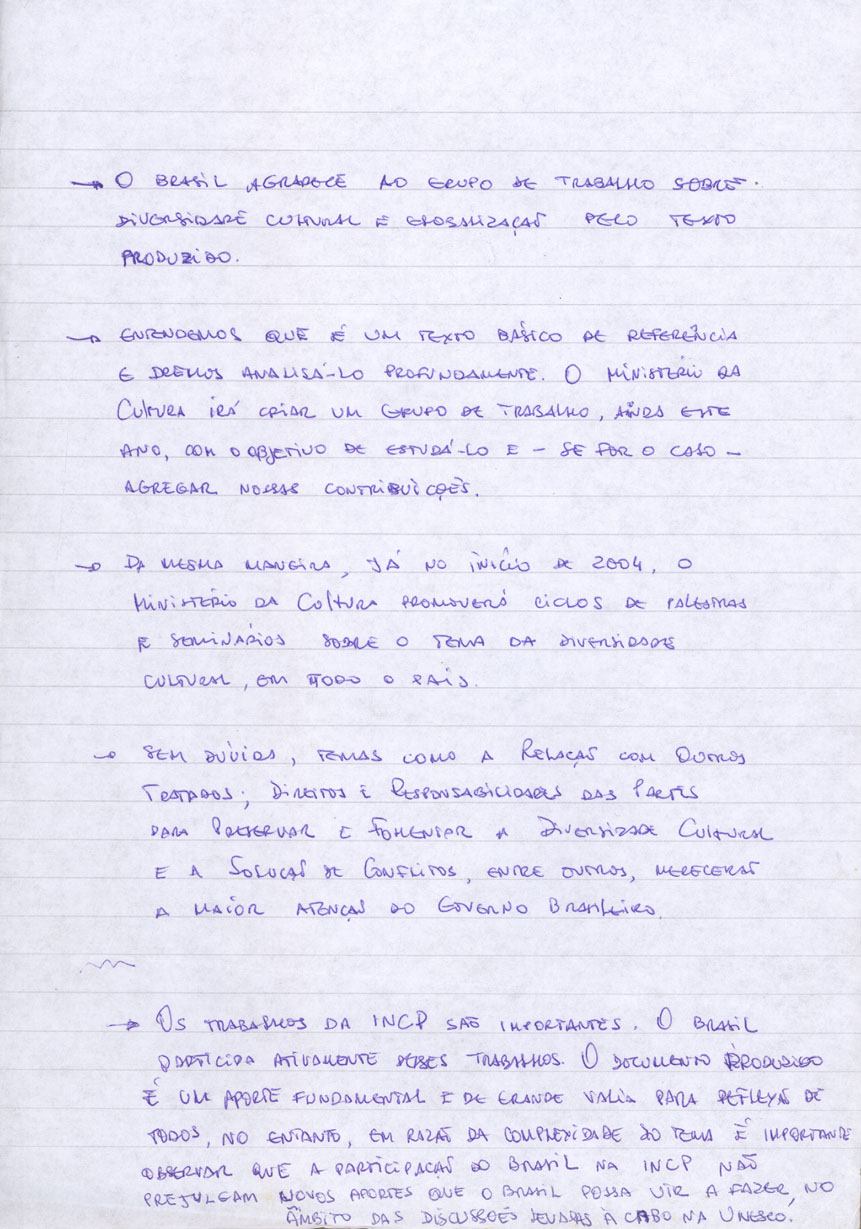 → O BRASIL AGRADECE AO GRUPO DE TRABALHO SOBRE
DIVERSIDADE CULTURAL E GLOBALIZAÇÃO PELO TEXTO
PRODUZIDO.
→ ENTENDEMOS QUE É UM TEXTO BÁSICO DE REFERÊNCIA
E IREMOS ANALISÁ-LO PROFUNDAMENTE. O MINISTÉRIO DA
CULTURA IRÁ CRIAR UM GRUPO DE TRABALHO, AINDA ESTE
ANO, COM O OBJETIVO DE ESTUDÁ-LO E – SE FOR O CASO –
AGREGAR NOSSAS CONTRIBUIÇÕES.
→ DA MESMA MANEIRA, JÁ NO INÍCIO DE 2004, O
MINISTÉRIO DA CULTURA PROMOVERÁ CICLOS DE PALESTRAS
E SEMINÁRIOS SOBRE O TEMA DA DIVERSIDADE
CULTURAL, EM TODO O PAÍS.
→ SEM DÚVIDA, TEMAS COMO A RELAÇÃO COM OUTROS
TRATADOS; DIREITOS E RESPONSABILIDADES DAS PARTES
PARA PRESERVAR E FOMENTAR A DIVERSIDADE CULTURAL
E A SOLUÇÃO DE CONFLITOS, ENTRE OUTROS, MERECERÃO
A MAIOR ATENÇÃO DO GOVERNO BRASILEIRO.
→ OS TRABALHOS DA INCP SÃO IMPORTANTES. O BRASIL
PARTICIPA ATIVAMENTE DESSES TRABALHOS. O DOCUMENTO PRODUZIDO
É UM APORTE FUNDAMENTAL E DE GRANDE VALIA PARA REFLEXÃO DE
TODOS, NO ENTANTO, EM RAZÃO DA COMPLEXIDADE DO TEMA É IMPORTANTE
OBSERVAR QUE A PARTICIPAÇÃO DO BRASIL NA INCP NÃO
PREJULGAM NOVOS APORTES QUE O BRASIL POSSA VIR A FAZER, NO
ÂMBITO DAS DISCUSSÕES LEVADAS À CABO NA UNESCO.